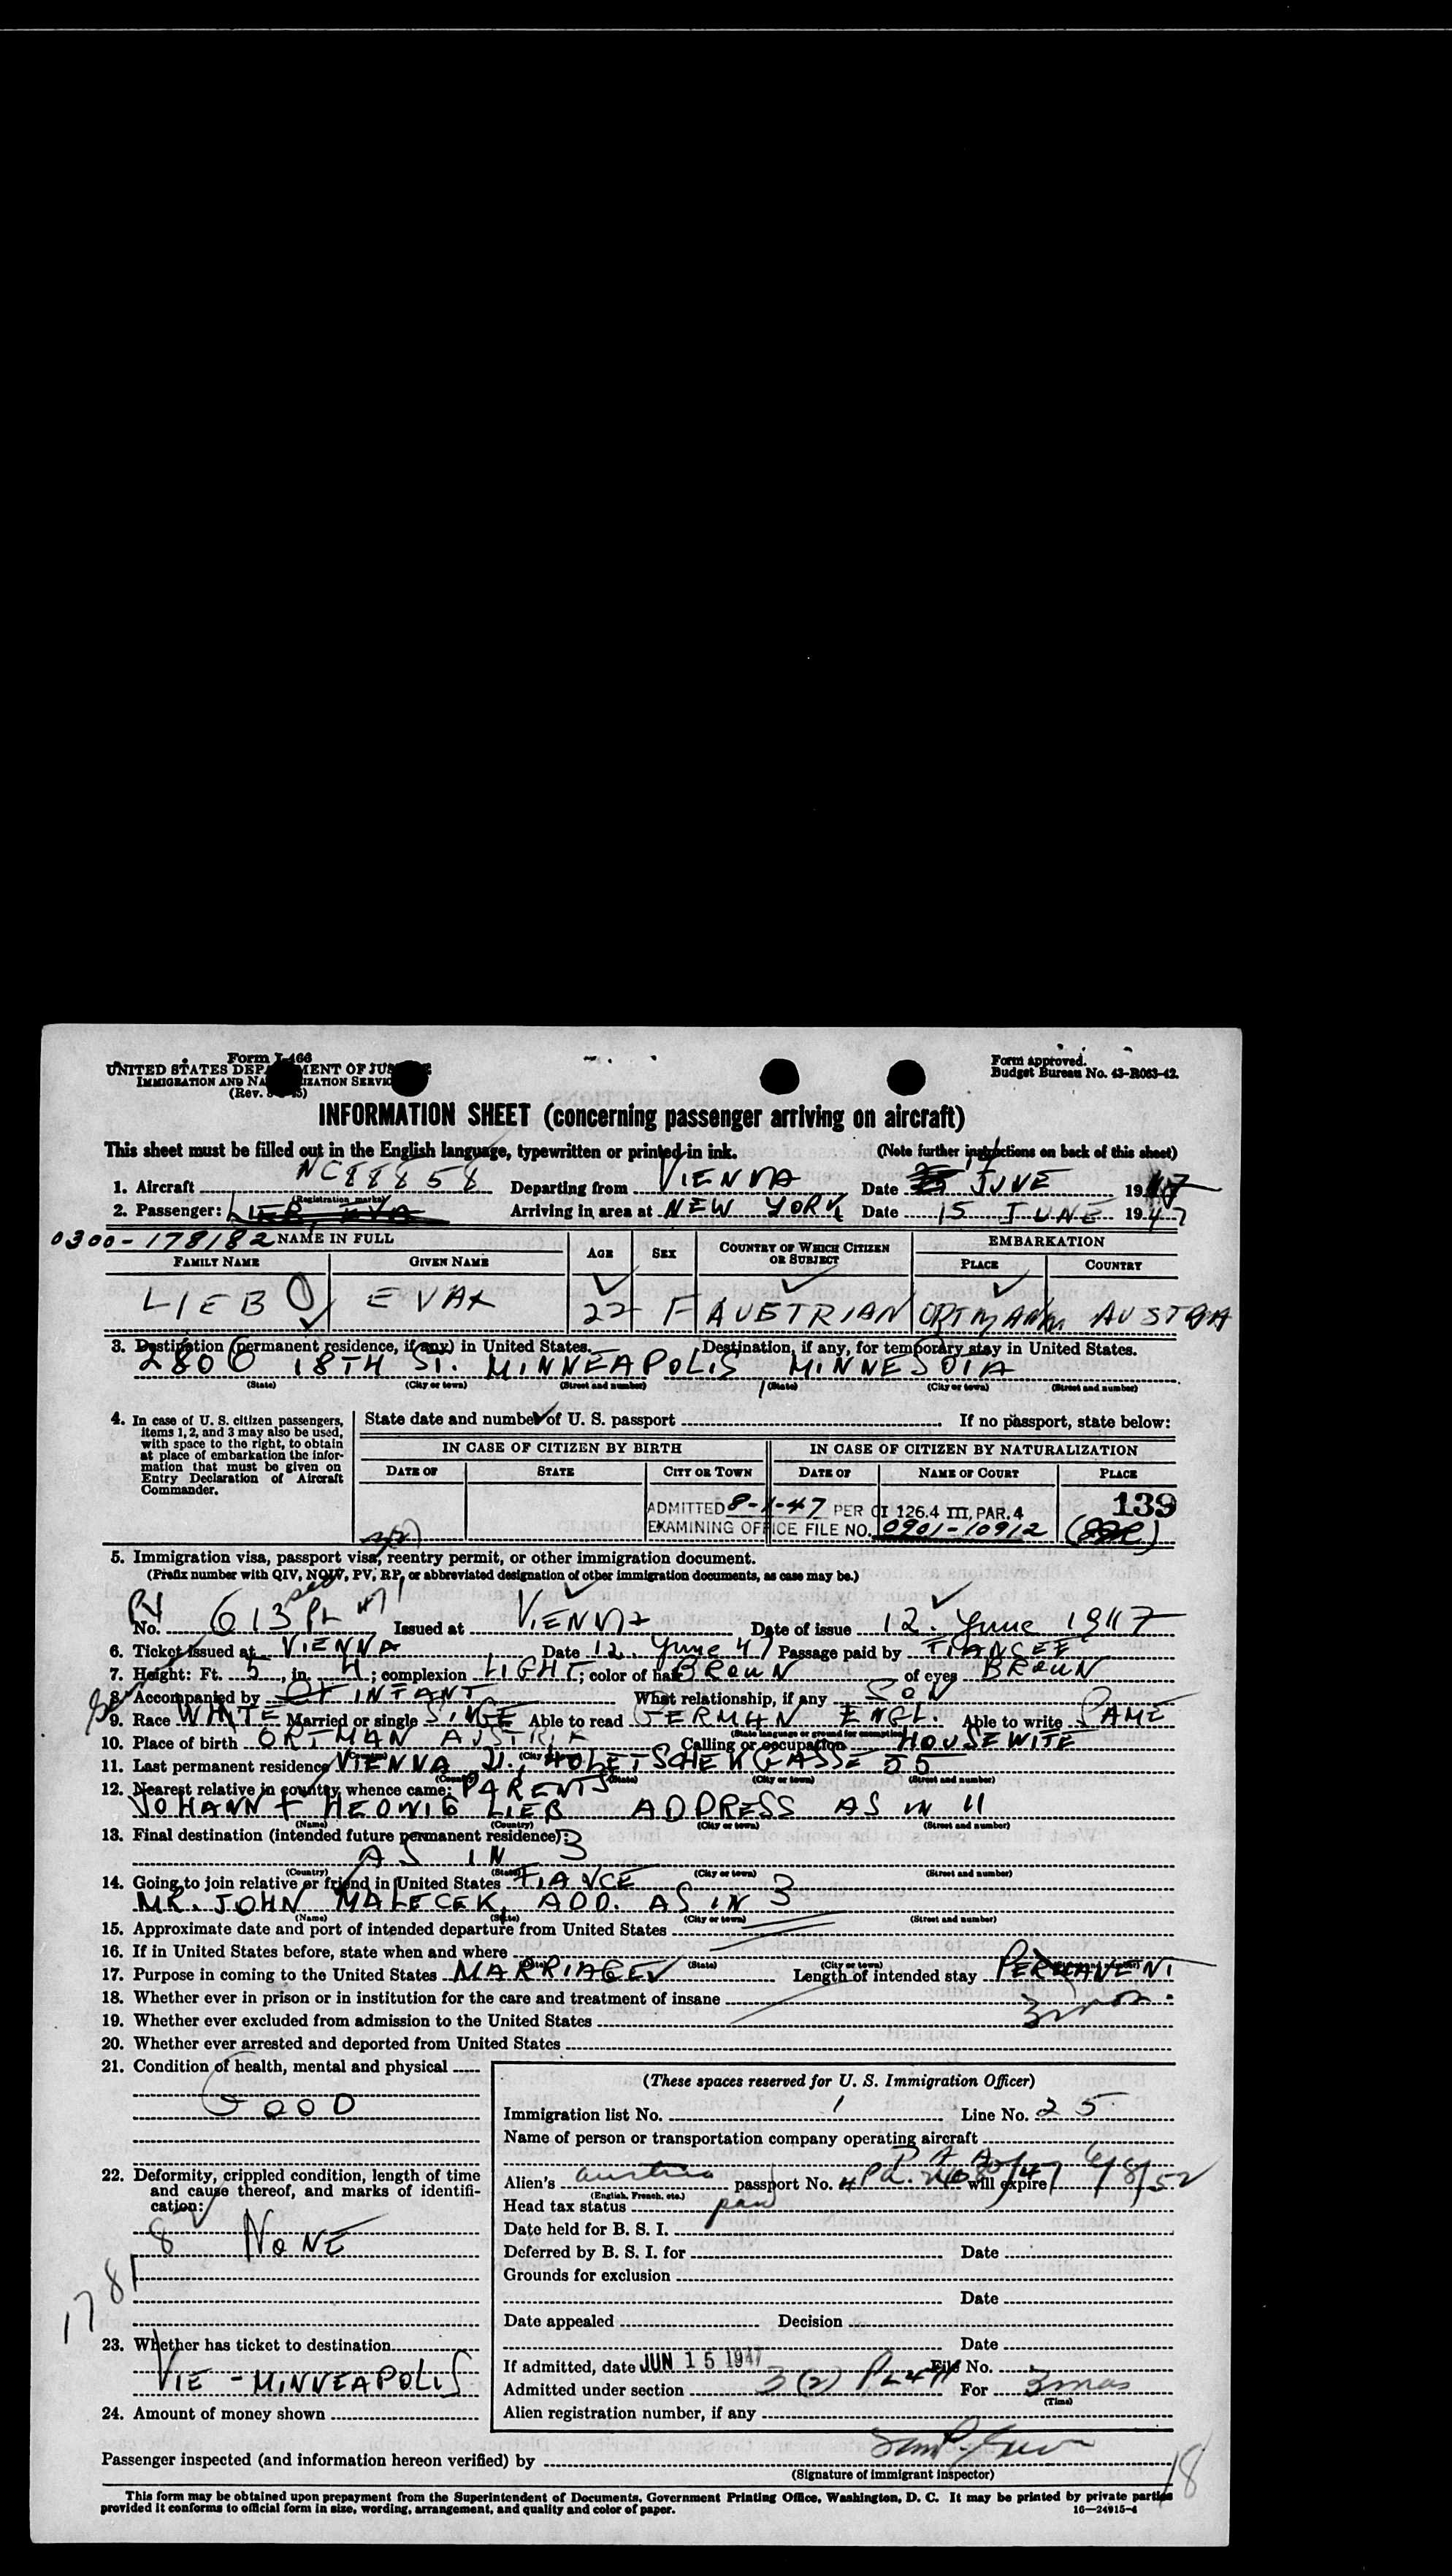 Form I-466
UNITED STATES DEPARTMENT OF JUSTICE
IMMIGRATION AND NATURALIZATION SERVICE
(Rev.
Form approved.
Budget Bureau No. 43-R063-42.
INFORMATION SHEET (concerning passenger arriving on aircraft)
This sheet must be filled out in the English language, typewritten or printed in ink. (Note further instructions on back of this sheet)
1. Aircraft NC88858 Departing from VIENNA Date JUNE 1947
(Registration marks)
2. Passenger: LIEB, EVA Arriving in area at NEW YORK Date 15 JUNE 1947
0300-178182 NAME IN FULL AGE SEX COUNTRY OF WHICH CITIZEN OR SUBJECT EMBARKATION
FAMILY NAME GIVEN NAME PLACE COUNTRY
LIEB EVA 22 F AUSTRIAN ORTMANN AUSTRIA
3. Destination (permanent residence, if any) in United States. Destination, if any, for temporary stay in United States.
2806 18TH ST. MINNEAPOLIS MINNESOTA
(State) (City or town) (Street and number) (State) (City or town) (Street and number)
4. In case of U. S. citizen passengers, items 1, 2, and 3 may also be used, with space to the right, to obtain at place of embarkation the information that must be given on Entry Declaration of Aircraft Commander.
State date and number of U. S. passport If no passport, state below:
IN CASE OF CITIZEN BY BIRTH IN CASE OF CITIZEN BY NATURALIZATION
DATE OF STATE CITY OR TOWN DATE OF NAME OF COURT PLACE
139
ADMITTED 8-1-47 PER CI 126.4 III, PAR. 4
EXAMINING OFFICE FILE NO. 0901-10912
5. Immigration visa, passport visa, reentry permit, or other immigration document.
(Prefix number with QIV, NQIV, PV, RP, or abbreviated designation of other immigration documents, as case may be.)
No. 613 PL 471 Issued at VIENNA Date of issue 12. June 1947
6. Ticket issued at VIENNA Date 12. June 47 Passage paid by FIANCEE
7. Height: Ft. 5, in. 4; complexion LIGHT; color of hair BROWN of eyes BROWN
8. Accompanied by INFANT What relationship, if any SON
9. Race WHITE Married or single SINGE Able to read GERMAN ENGL. Able to write SAME
(State language or ground for exemption)
10. Place of birth ORTMAN AUSTRIA Calling or occupation HOUSEWIFE
11. Last permanent residence VIENNA 21., HOLETSCHEKGASSE 55
(Country) (State) (City or town) (Street and number)
12. Nearest relative in country whence came: PARENTS
JOHANN + HEDWIG LIEB ADDRESS AS IN 11
(Name) (Country) (City or town) (Street and number)
13. Final destination (intended future permanent residence):
AS IN 3
(Country) (State) (City or town) (Street and number)
14. Going to join relative or friend in United States FIANCE
MR. JOHN MALECEK, ADD. AS IN 3
(Name) (State) (City or town) (Street and number)
15. Approximate date and port of intended departure from United States
16. If in United States before, state when and where
(State) (City or town)
17. Purpose in coming to the United States MARRIAGE Length of intended stay PERMANENT
18. Whether ever in prison or in institution for the care and treatment of insane
3 mos.
19. Whether ever excluded from admission to the United States
20. Whether ever arrested and deported from United States
21. Condition of health, mental and physical
GOOD
22. Deformity, crippled condition, length of time and cause thereof, and marks of identification:
NONE
1781
23. Whether has ticket to destination
VIE - MINNEAPOLIS
24. Amount of money shown
(These spaces reserved for U. S. Immigration Officer)
Immigration list No. 1 Line No. 25
Name of person or transportation company operating aircraft
P A A
Alien's Austria passport No. will expire 6/8/52
(English, French, etc.)
Head tax status paid
Date held for B. S. I.
Deferred by B. S. I. for Date
Grounds for exclusion
Date
Date appealed Decision
Date
If admitted, date JUN 15 1947 File No.
Admitted under section 3(2) PL 471 For 3 mos
(Time)
Alien registration number, if any
Passenger inspected (and information hereon verified) by
(Signature of immigrant inspector)
18
This form may be obtained upon prepayment from the Superintendent of Documents, Government Printing Office, Washington, D. C. It may be printed by private parties
provided it conforms to official form in size, wording, arrangement, and quality and color of paper.
16—24915-4